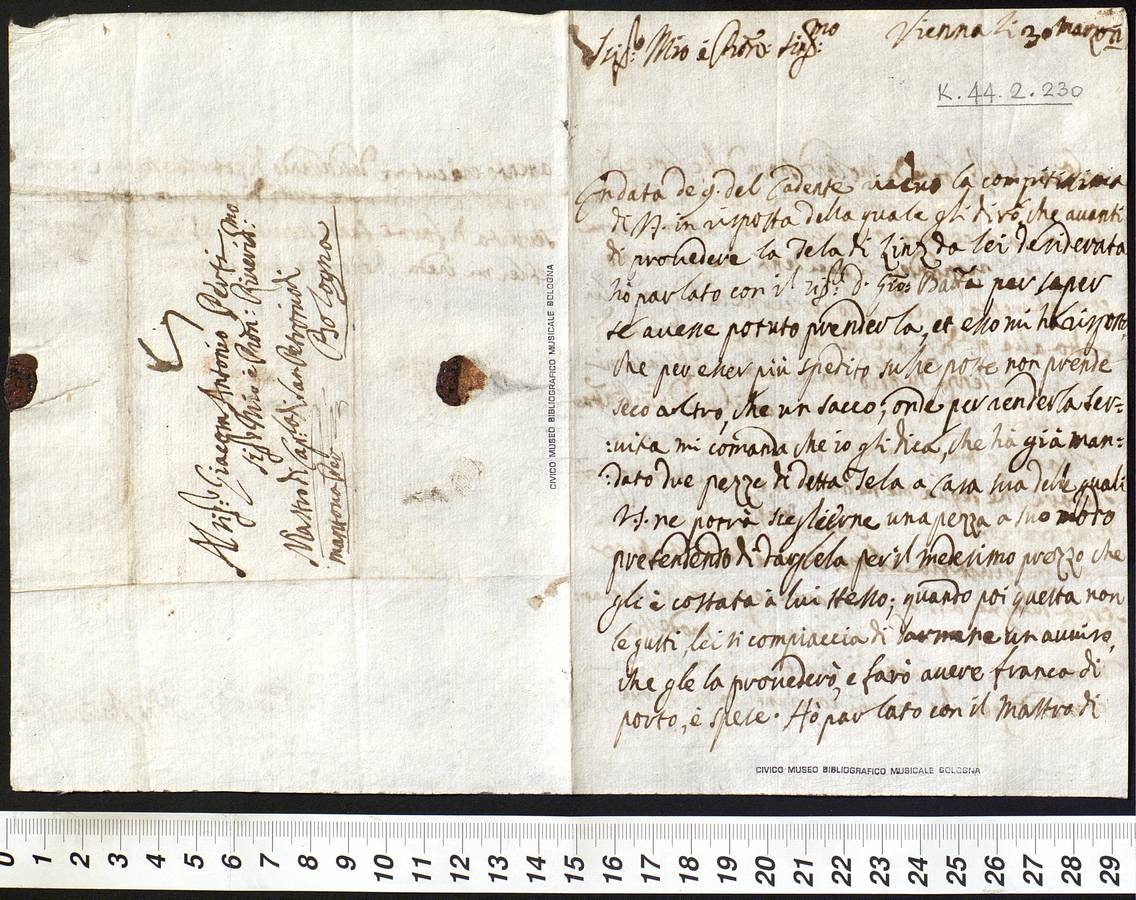 Al Sig.r Giacom' Antonio Perti
Sig.r mio e Pron: Riverit.mo
Mastro di Cap.la di San Petronio di
Bologna
Mantova per
CIVICO MUSEO BIBLIOGRAFICO MUSICALE BOLOGNA
Sig.r Mio e Pron: Sing.mo Vienna li 30 Marzo
K. 44. 2. 230
In data de 9. del Cadente ricevo la compitissima
di V.S. in risposta della quale gli dirò, che avanti
di provedere la Tela di Linz da lei desiderata
hò parlato con il Sig.r D. Gio: Batta per saper
se avesse potuto prenderla, et esso mi ha risposto,
che per esser più spedito su le poste non prende
seco altro, che un sacco; onde per renderla ser=
:vita mi comanda che io gli dica, che hà già man=
:dato due pezze di detta Tela a Casa sua dele quali
V.S. ne potrà sciegliere una pezza a suo modo
pretendendo di dargliela per il medesimo prezzo che
gli è costata à lui stesso; quando poi questa non
le gusti, lei si compiaccia di darmene un avviso,
che gle la provederò, e farò avere franca di
porto, e spese. Hò parlato con il Mastro di
CIVICO MUSEO BIBLIOGRAFICO MUSICALE BOLOGNA
0 1 2 3 4 5 6 7 8 9 10 11 12 13 14 15 16 17 18 19 20 21 22 23 24 25 26 27 28 29